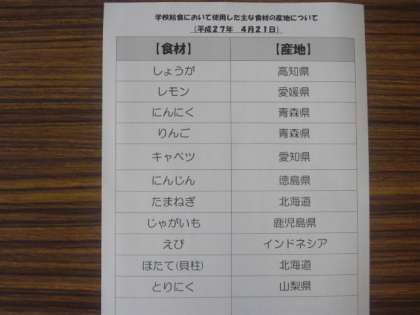 学校給食において使用した主な食材の産地について
（平成２７年　４月２１日）
【食材】　【産地】
しょうが　高知県
レモン　愛媛県
にんにく　青森県
りんご　青森県
キャベツ　愛知県
にんじん　徳島県
たまねぎ　北海道
じゃがいも　鹿児島県
えび　インドネシア
ほたて(貝柱)　北海道
とりにく　山梨県